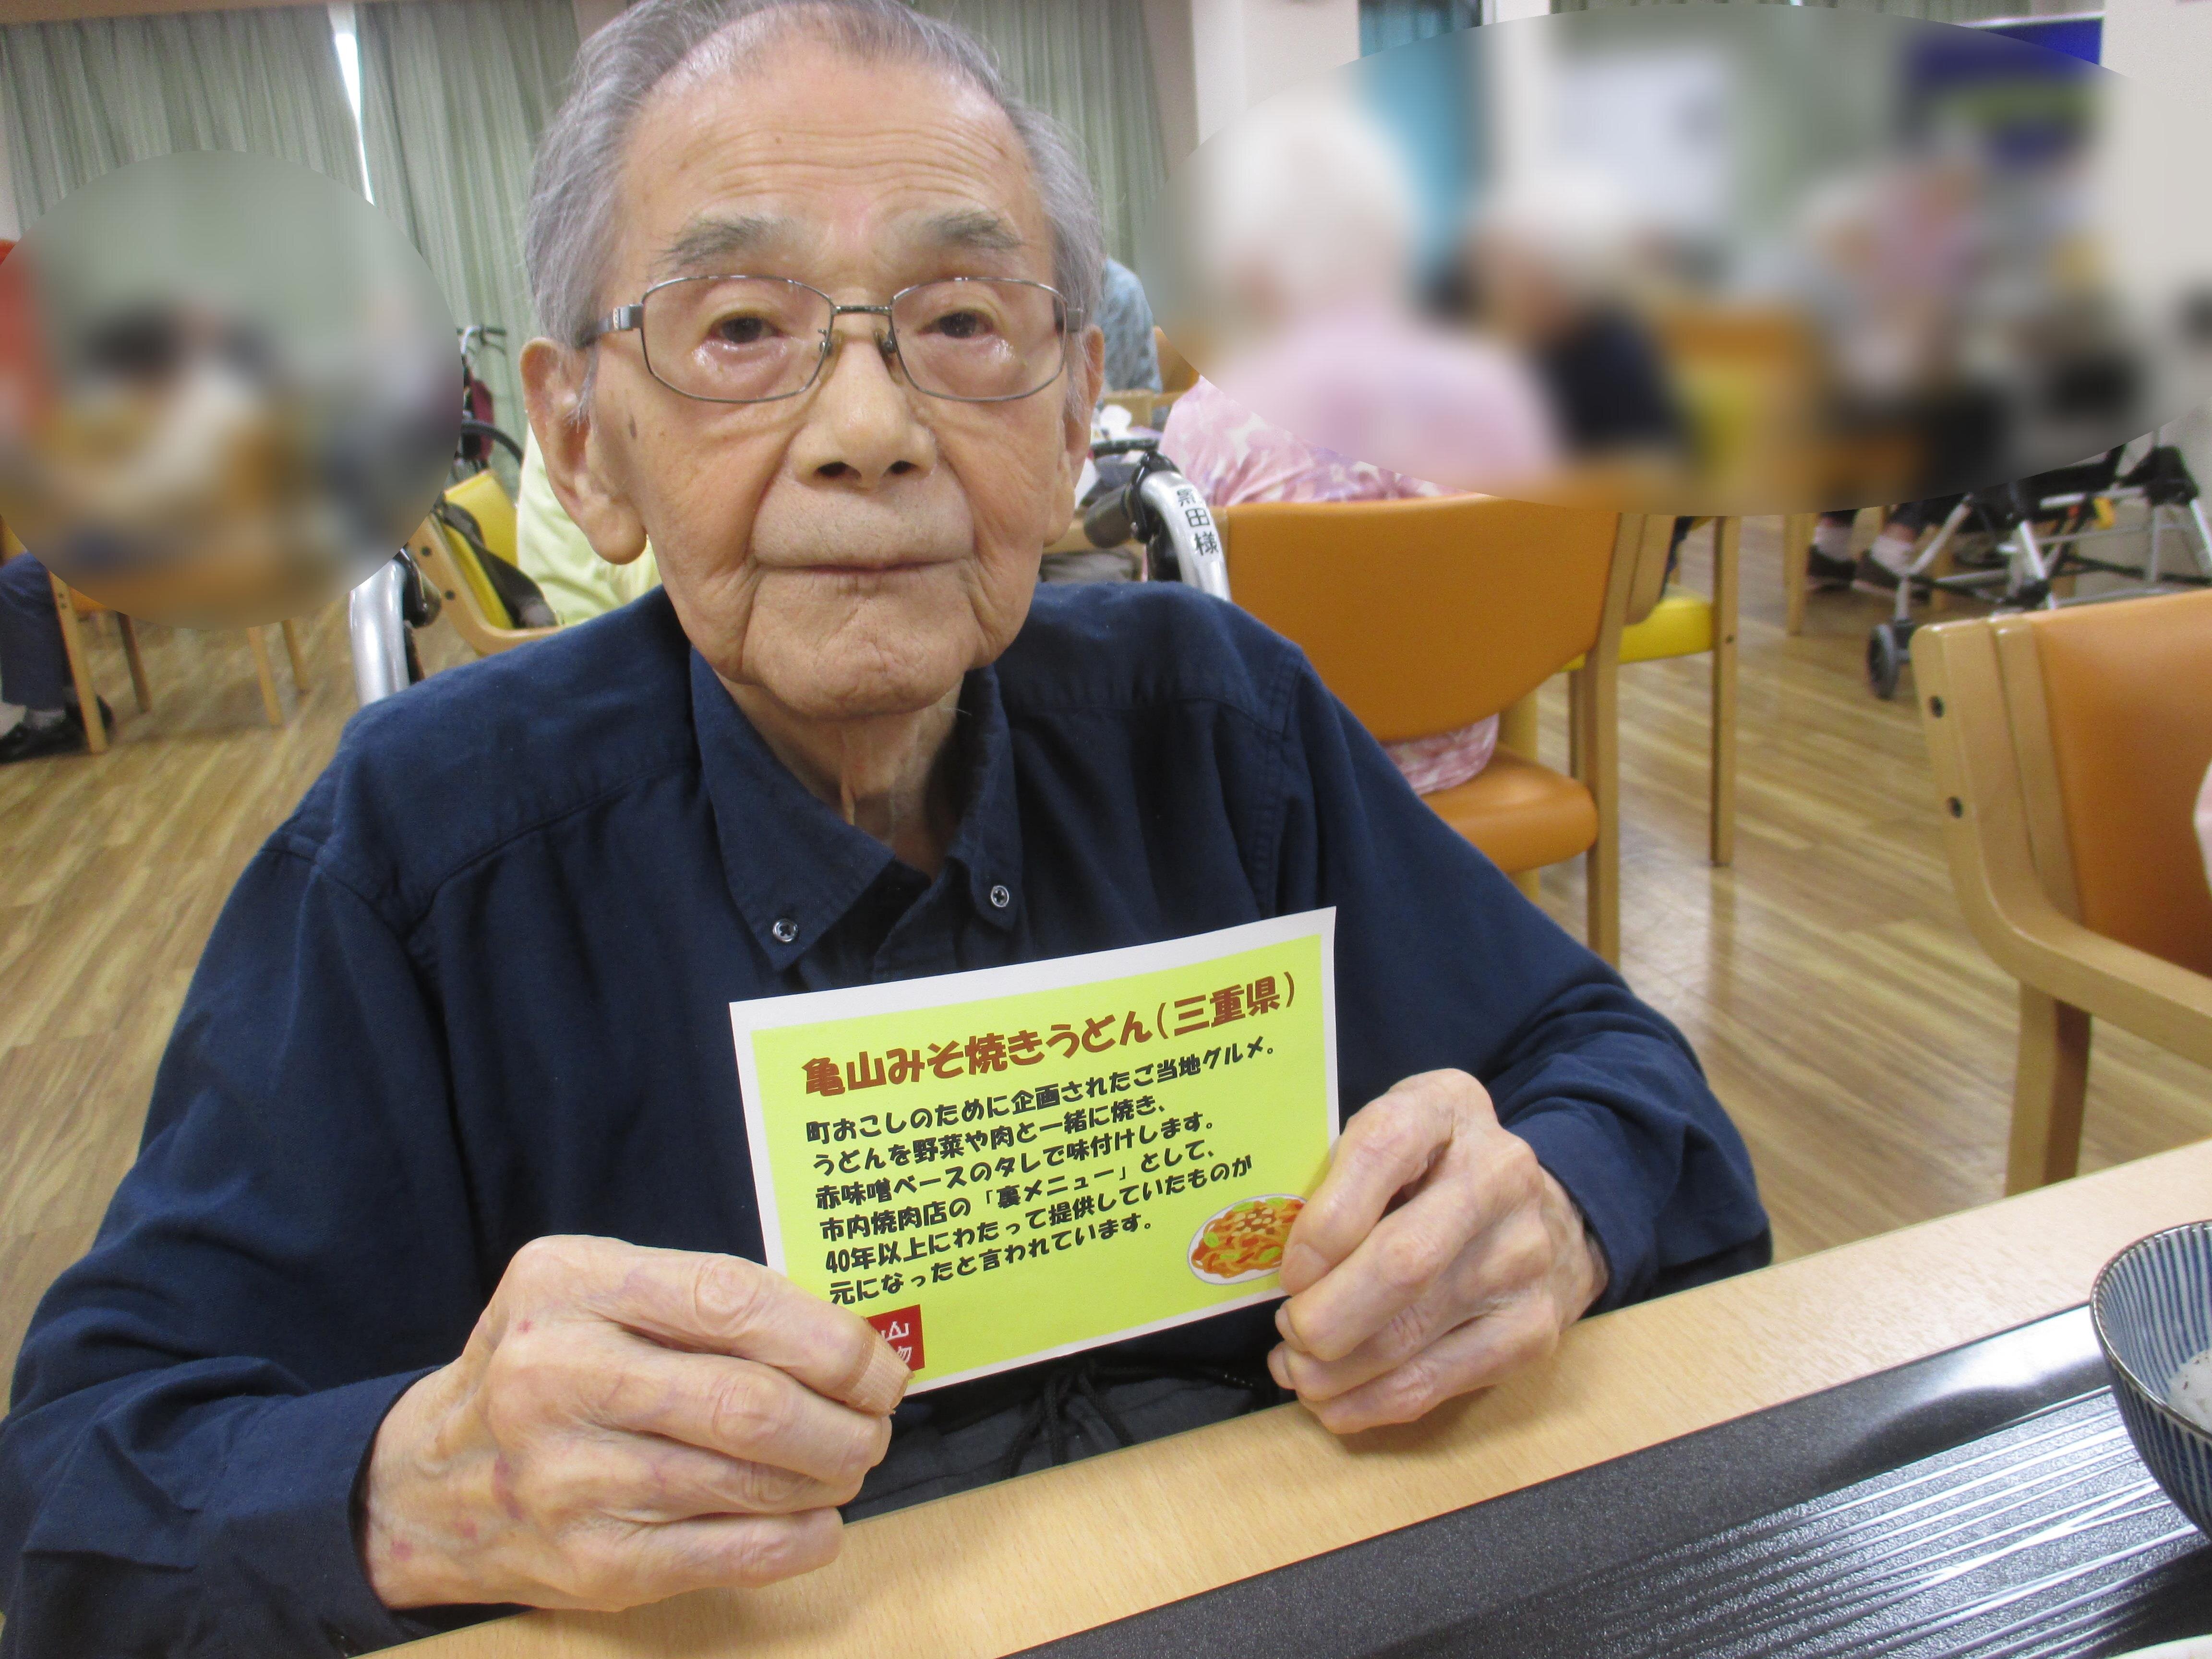 黒田様
亀山みそ焼きうどん(三重県)
町おこしのために企画されたご当地グルメ。
うどんを野菜や肉と一緒に焼き、
赤味噌ベースのタレで味付けします。
市内焼肉店の「裏メニュー」として、
40年以上にわたって提供していたものが
元になったと言われています。
山